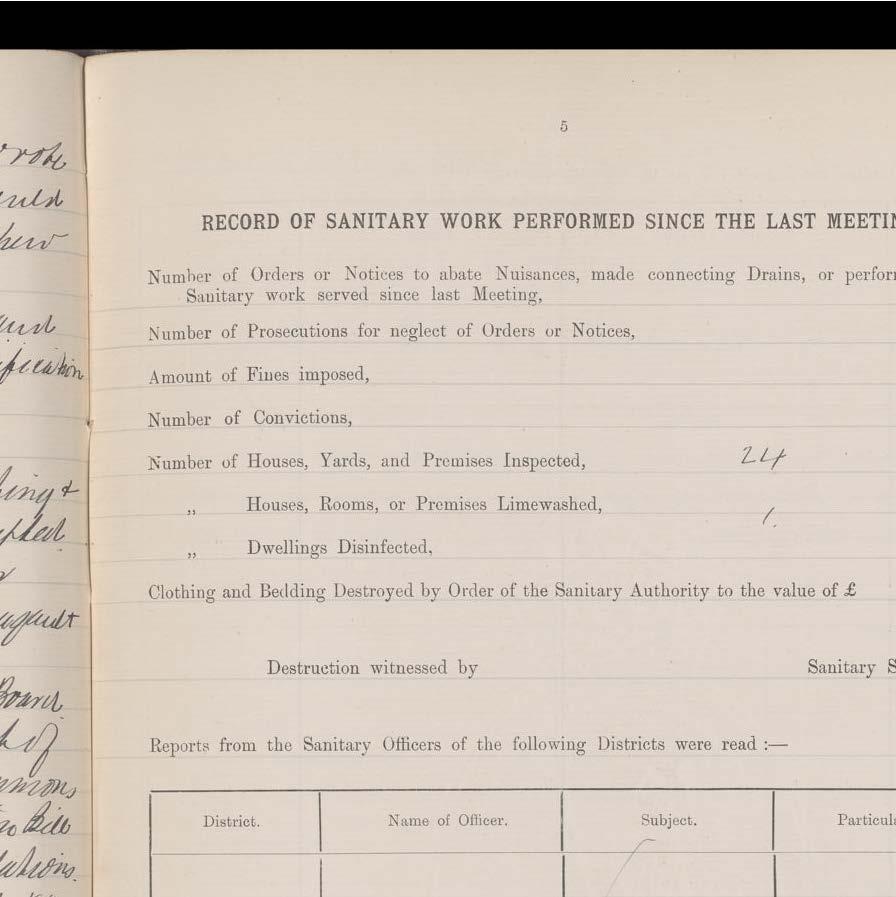 wrote
5
RECORD OF SANITARY WORK PERFORMED SINCE THE LAST MEETIN
Number of Orders or Notices to abate Nuisances, made connecting Drains, or perfor
Sanitary work served since last Meeting,
Number of Prosecutions for neglect of Orders or Notices,
Amount of Fines imposed,
Number of Convictions,
Number of Houses, Yards, and Premises Inspected, 24
„ Houses, Rooms, or Premises Limewashed, 1.
„ Dwellings Disinfected,
Clothing and Bedding Destroyed by Order of the Sanitary Authority to the value of £
Board
Destruction witnessed by Sanitary S
of
Reports from the Sanitary Officers of the following Districts were read :—
Bill
District. Name of Officer. Subject. Particula